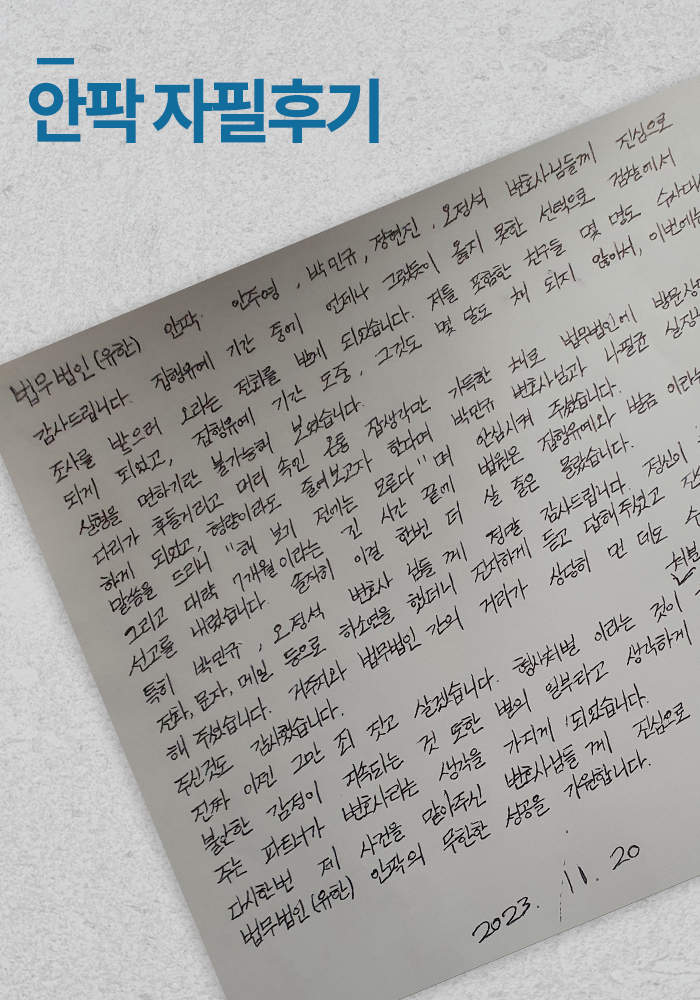 안팍 자필후기
법무법인(유한) 안팍 안주영, 박민규, 장현진, 오정석 변호사님들께 진심으로
감사드립니다. 집행유예 기간 중에 언제나 그랬듯이 옳지 못한 선택으로 검찰에서
조사를 받으러 오라는 전화를 받게 되었습니다. 저를 포함한 친구들 몇 명도 수사대
되게 되었고, 집행유예 기간 도중, 그것도 몇 달도 채 되지 않아서, 이번에는
실형을 면하기란 불가능해 보였습니다.
다리가 후들거리고 머리 속인 온통 잡생각만 가득한 채로 법무법인에 방문상
하게 되었고, 형량이라도 줄여보고자 한다며 박민규 변호사님과 나필균 실장
말씀을 드리니 "해 보기 전에는 모른다"며 안심시켜 주셨습니다.
그리고 대략 7개월이라는 긴 시간 끝에 법원은 집행유예와 벌금 이라는
선고를 내렸습니다. 솔직히 이걸 한번 더 살 줄은 몰랐습니다.
특히 박민규, 오정석 변호사 님들 께 정말 감사드립니다. 정신이
전화, 문자, 메일 등으로 하소연을 했더니 진지하게 듣고 답해주셨고
해 주셨습니다. 거주지와 법무법인 간의 거리가 상당히 먼 데도
주신것도 감사했습니다.
처벌
진짜 이젠 그만 죄 짓고 살겠습니다. 형사처벌 이라는 것이
불안한 감정이 지속되는 것 또한 벌의 일부라고 생각하게
주는 파트너가 변호사라는 생각을 가지게 되었습니다.
다시한번 제 사건을 맡아주신 변호사님들 께 진심으로
법무법인(유한) 안팍의 무한한 성공을 기원합니다.
2023. 11. 20